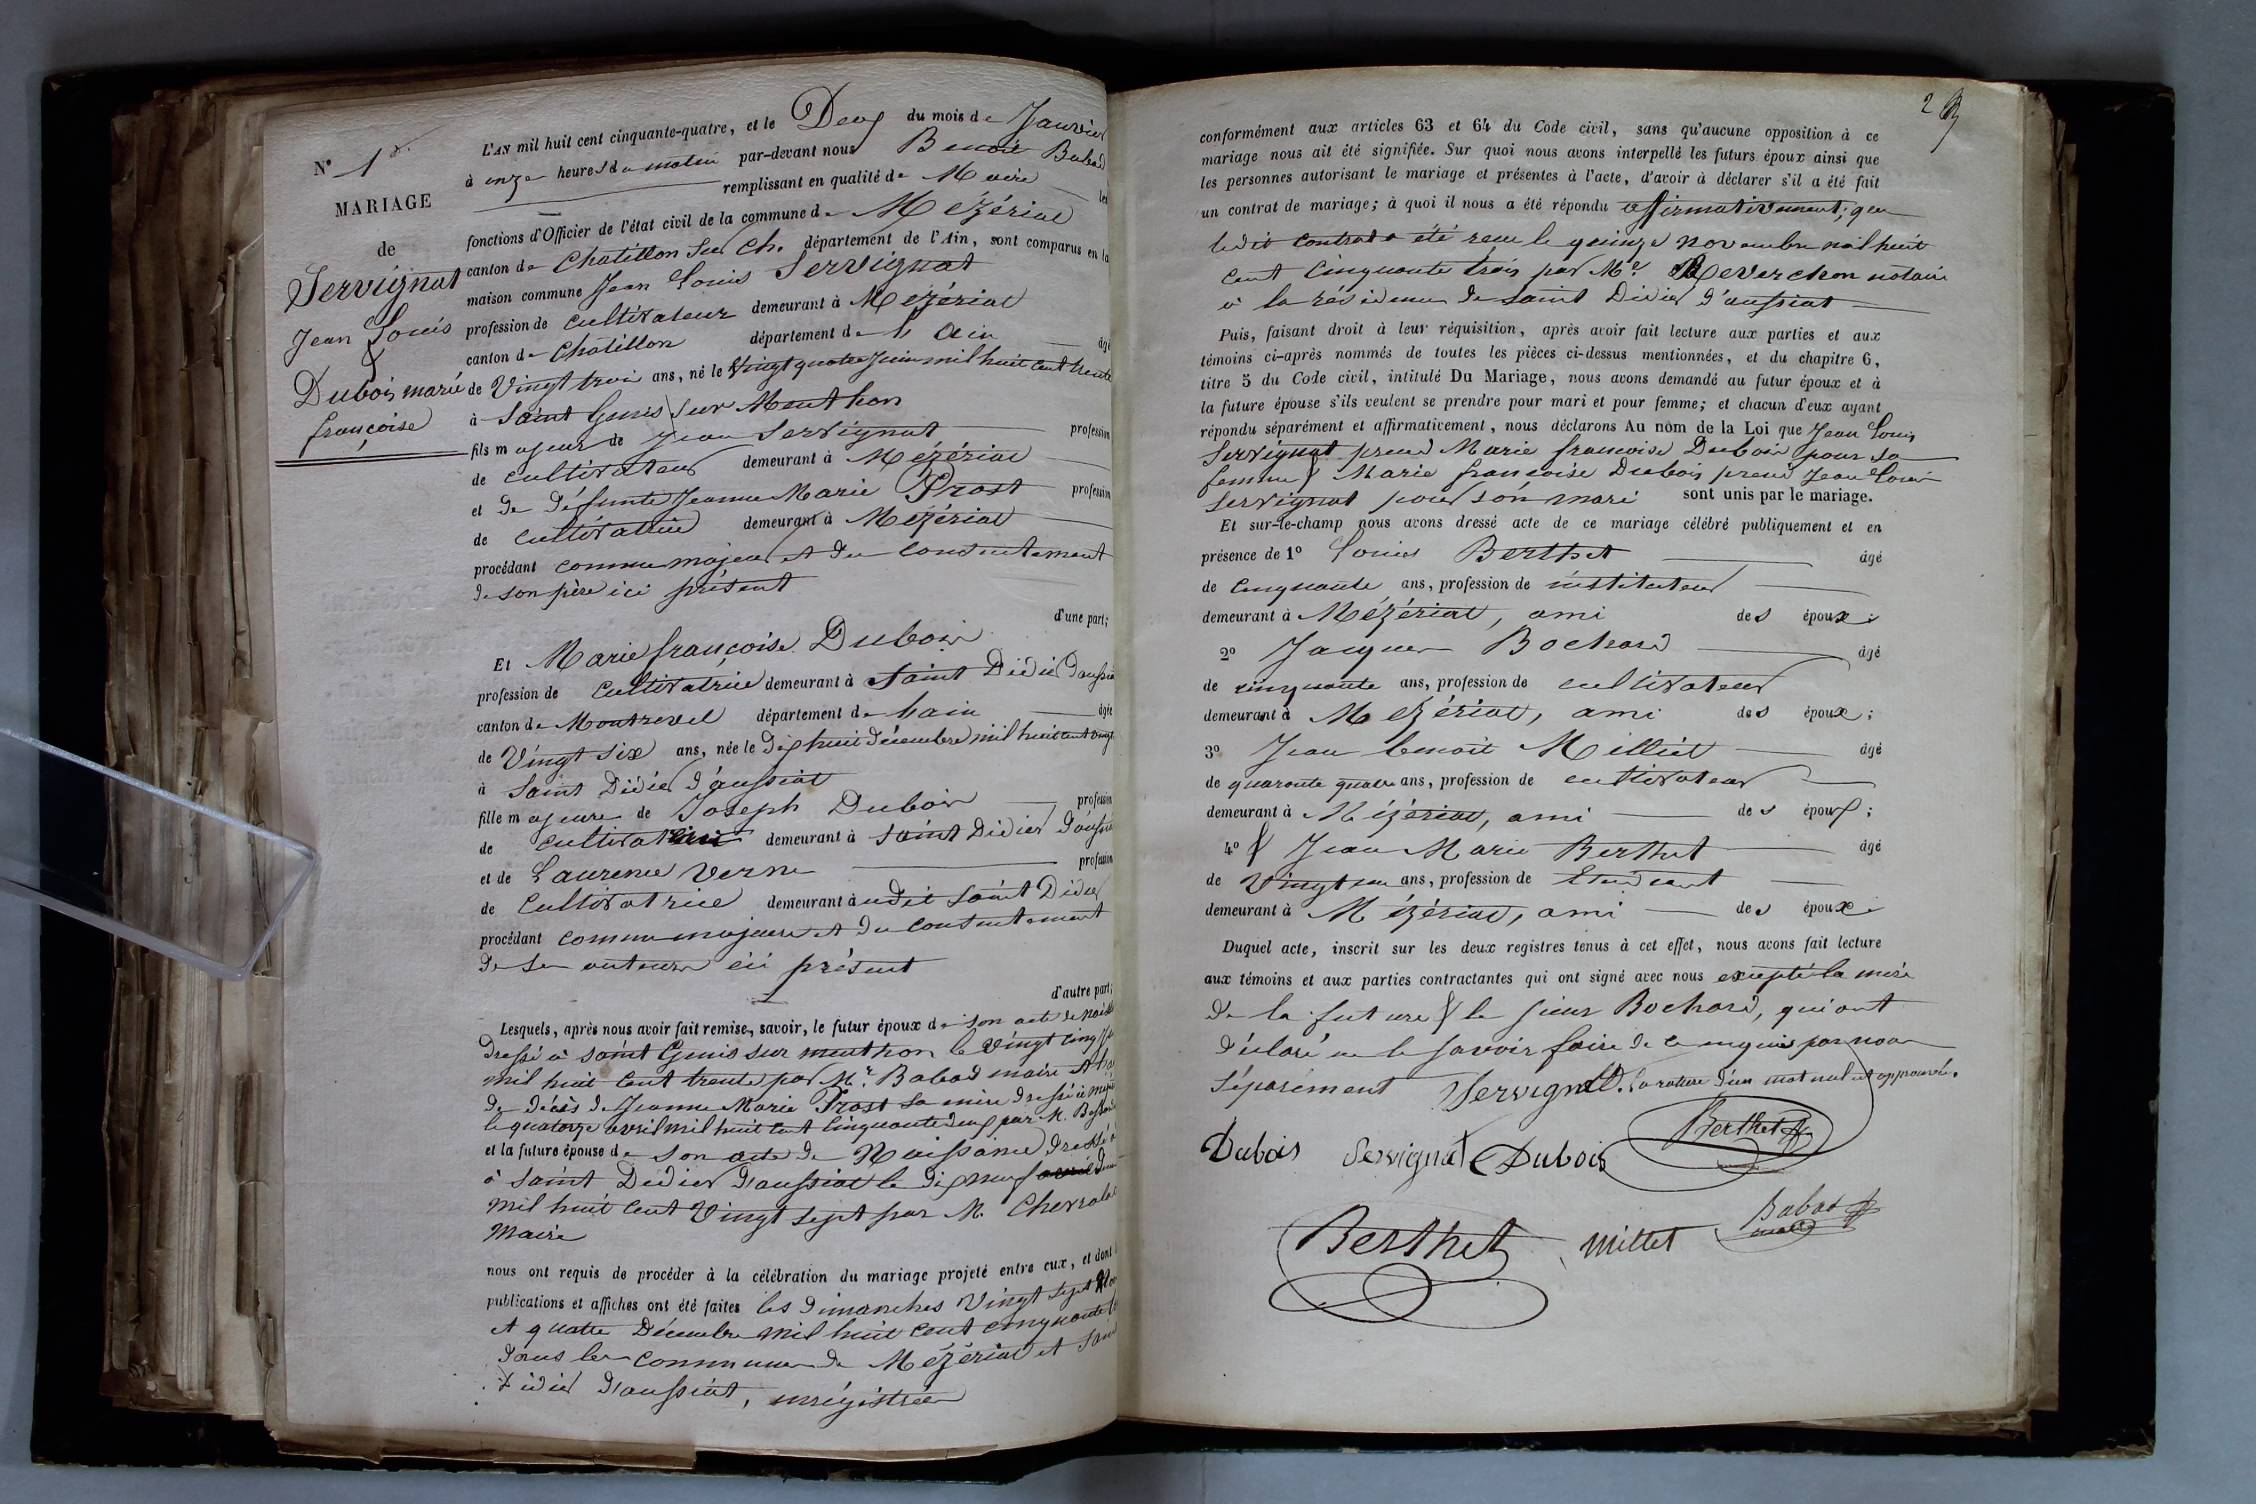 N° 1er
MARIAGE
de
Servignat
Jean Louis
&
Dubois marie
françoise
L'AN mil huit cent cinquante-quatre, et le Deux du mois de Janvier
à onze heures du matin par-devant nous Benoit Babad
remplissant en qualité de Maire les
fonctions d'Officier de l'état civil de la commune de Mézériat
canton de Chatillon sur Ch. département de l'Ain, sont comparus en la
maison commune Jean Louis Servignat
profession de cultivateur demeurant à Mézériat
canton de Chatillon département de l'Ain âgé
de Vingt trois ans, né le Vingt quatre Juin mil huit cent trente
à Saint Genis sur Menthon
fils majeur de Jean Servignat profession
de cultivateur demeurant à Mézériat
et de défunte Jeanne Marie Prost profession
de cultivatrice demeurant à Mézériat
procédant comme majeur et du consentement
de son père ici présent
d'une part;
Et Marie françoise Dubois
profession de cultivatrice demeurant à Saint Didier d'aussiat
canton de Montrevel département de l'ain âgée
de Vingt six ans, née le Dix huit décembre mil huit cent vingt
à Saint Didier d'aussiat
fille majeure de Joseph Dubois profession
de demeurant à Saint Didier d'aussia
et de Laurence Verne profession
de Cultivatrice demeurant audit Saint Didier
procédant comme majeure et du consentement
de ses auteurs ici présent
d'autre part;
Lesquels, après nous avoir fait remise, savoir, le futur époux de son acte de naiss
dressé à Saint Genis sur menthon le Vingt cinq
mil huit cent trente par Mr. Babad maire et
de décès de Jeanne Marie Prost sa mère dressé à
le quatorze avril mil huit cent cinquante deux par M.
et la future épouse de son acte de Naissance dressé
à Saint Didier d'aussiat le dix neuf
mil huit cent Vingt sept par M.
Maire
nous ont requis de procéder à la célébration du mariage projeté entre eux, et dont
publications et affiches ont été faites les dimanches Vingt sept Nov
et quatre Décembre mil huit cent cinquante
dans les communes de Mézériat et Saint
Didier d'aussiat, enrégistrées
2
conformément aux articles 63 et 64 du Code civil, sans qu'aucune opposition à ce
mariage nous ait été signifiée. Sur quoi nous avons interpellé les futurs époux ainsi que
les personnes autorisant le mariage et présentes à l'acte, d'avoir à déclarer s'il a été fait
un contrat de mariage; à quoi il nous a été répondu affirmativement; que
ledit contrat a été reçu le quinze novembre mil huit
cent cinquante trois par Me. Reverchon notaire
à la résidence de Saint Didier d'aussiat
Puis, faisant droit à leur réquisition, après avoir fait lecture aux parties et aux
témoins ci-après nommés de toutes les pièces ci-dessus mentionnées, et du chapitre 6,
titre 5 du Code civil, intitulé Du Mariage, nous avons demandé au futur époux et à
la future épouse s'ils veulent se prendre pour mari et pour femme; et chacun d'eux ayant
répondu séparément et affirmativement, nous déclarons Au nom de la Loi que Jean Louis
Servignat prend Marie françoise Dubois pour sa
femme & Marie françoise Dubois prend Jean Louis
Servignat pour son mari sont unis par le mariage.
Et sur-le-champ nous avons dressé acte de ce mariage célébré publiquement et en
présence de 1° Louis Berthet âgé
de cinquante ans, profession de instituteur
demeurant à Mézériat, ami des époux;
2° Jacques Bochard âgé
de cinquante ans, profession de cultivateur
demeurant à Mézériat, ami des époux;
3° Jean benoit Milliet âgé
de quarante quatre ans, profession de cultivateur
demeurant à Mézériat, ami des époux;
4° & Jean Marie Berthet âgé
de Vingt un ans, profession de Etudiant
demeurant à Mézériat, ami des époux
Duquel acte, inscrit sur les deux registres tenus à cet effet, nous avons fait lecture
aux témoins et aux parties contractantes qui ont signé avec nous excepté la mère
de la future & le sieur Bochard, qui ont
déclaré ne le savoir faire de ce enquis par nous
séparément Servignat. la rature d'un mot nul est approuvée.
Berthet
Dubois Servignat Dubois
Berthet millet Babad
maire